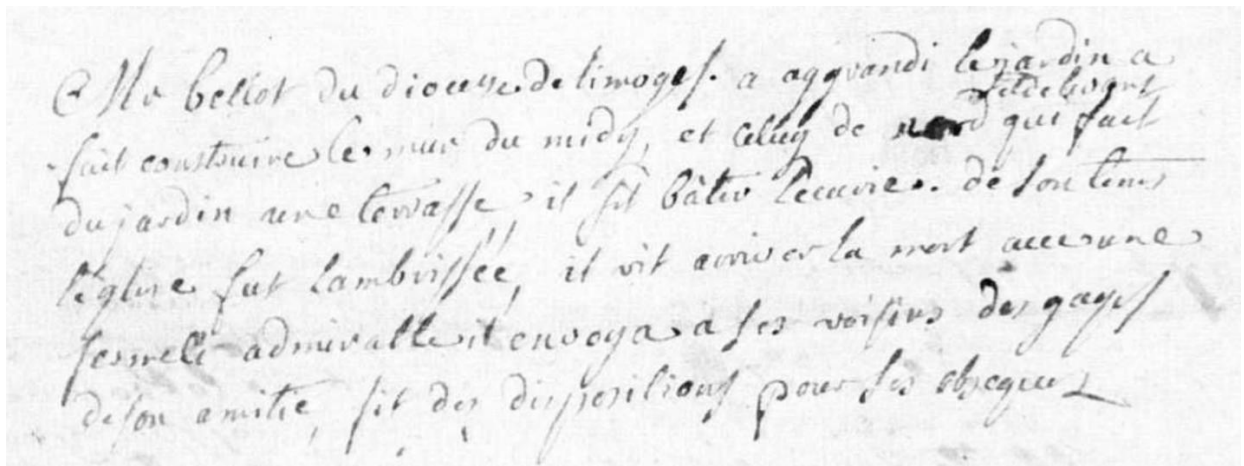 Mr bellot du diocesse de limoges. a aggrandi le jardin a
fait construire le mur du midy, et celuy de nord et de levant qui fait
du jardin une terrasse, il fit bâtir l'ecurie. de son tems
l'église fut lambrissée, il vit arriver la mort avec une
fermeté admirable it envoya a ses voisins des gages
de son amitié, fit des dispositions pour ses obseques